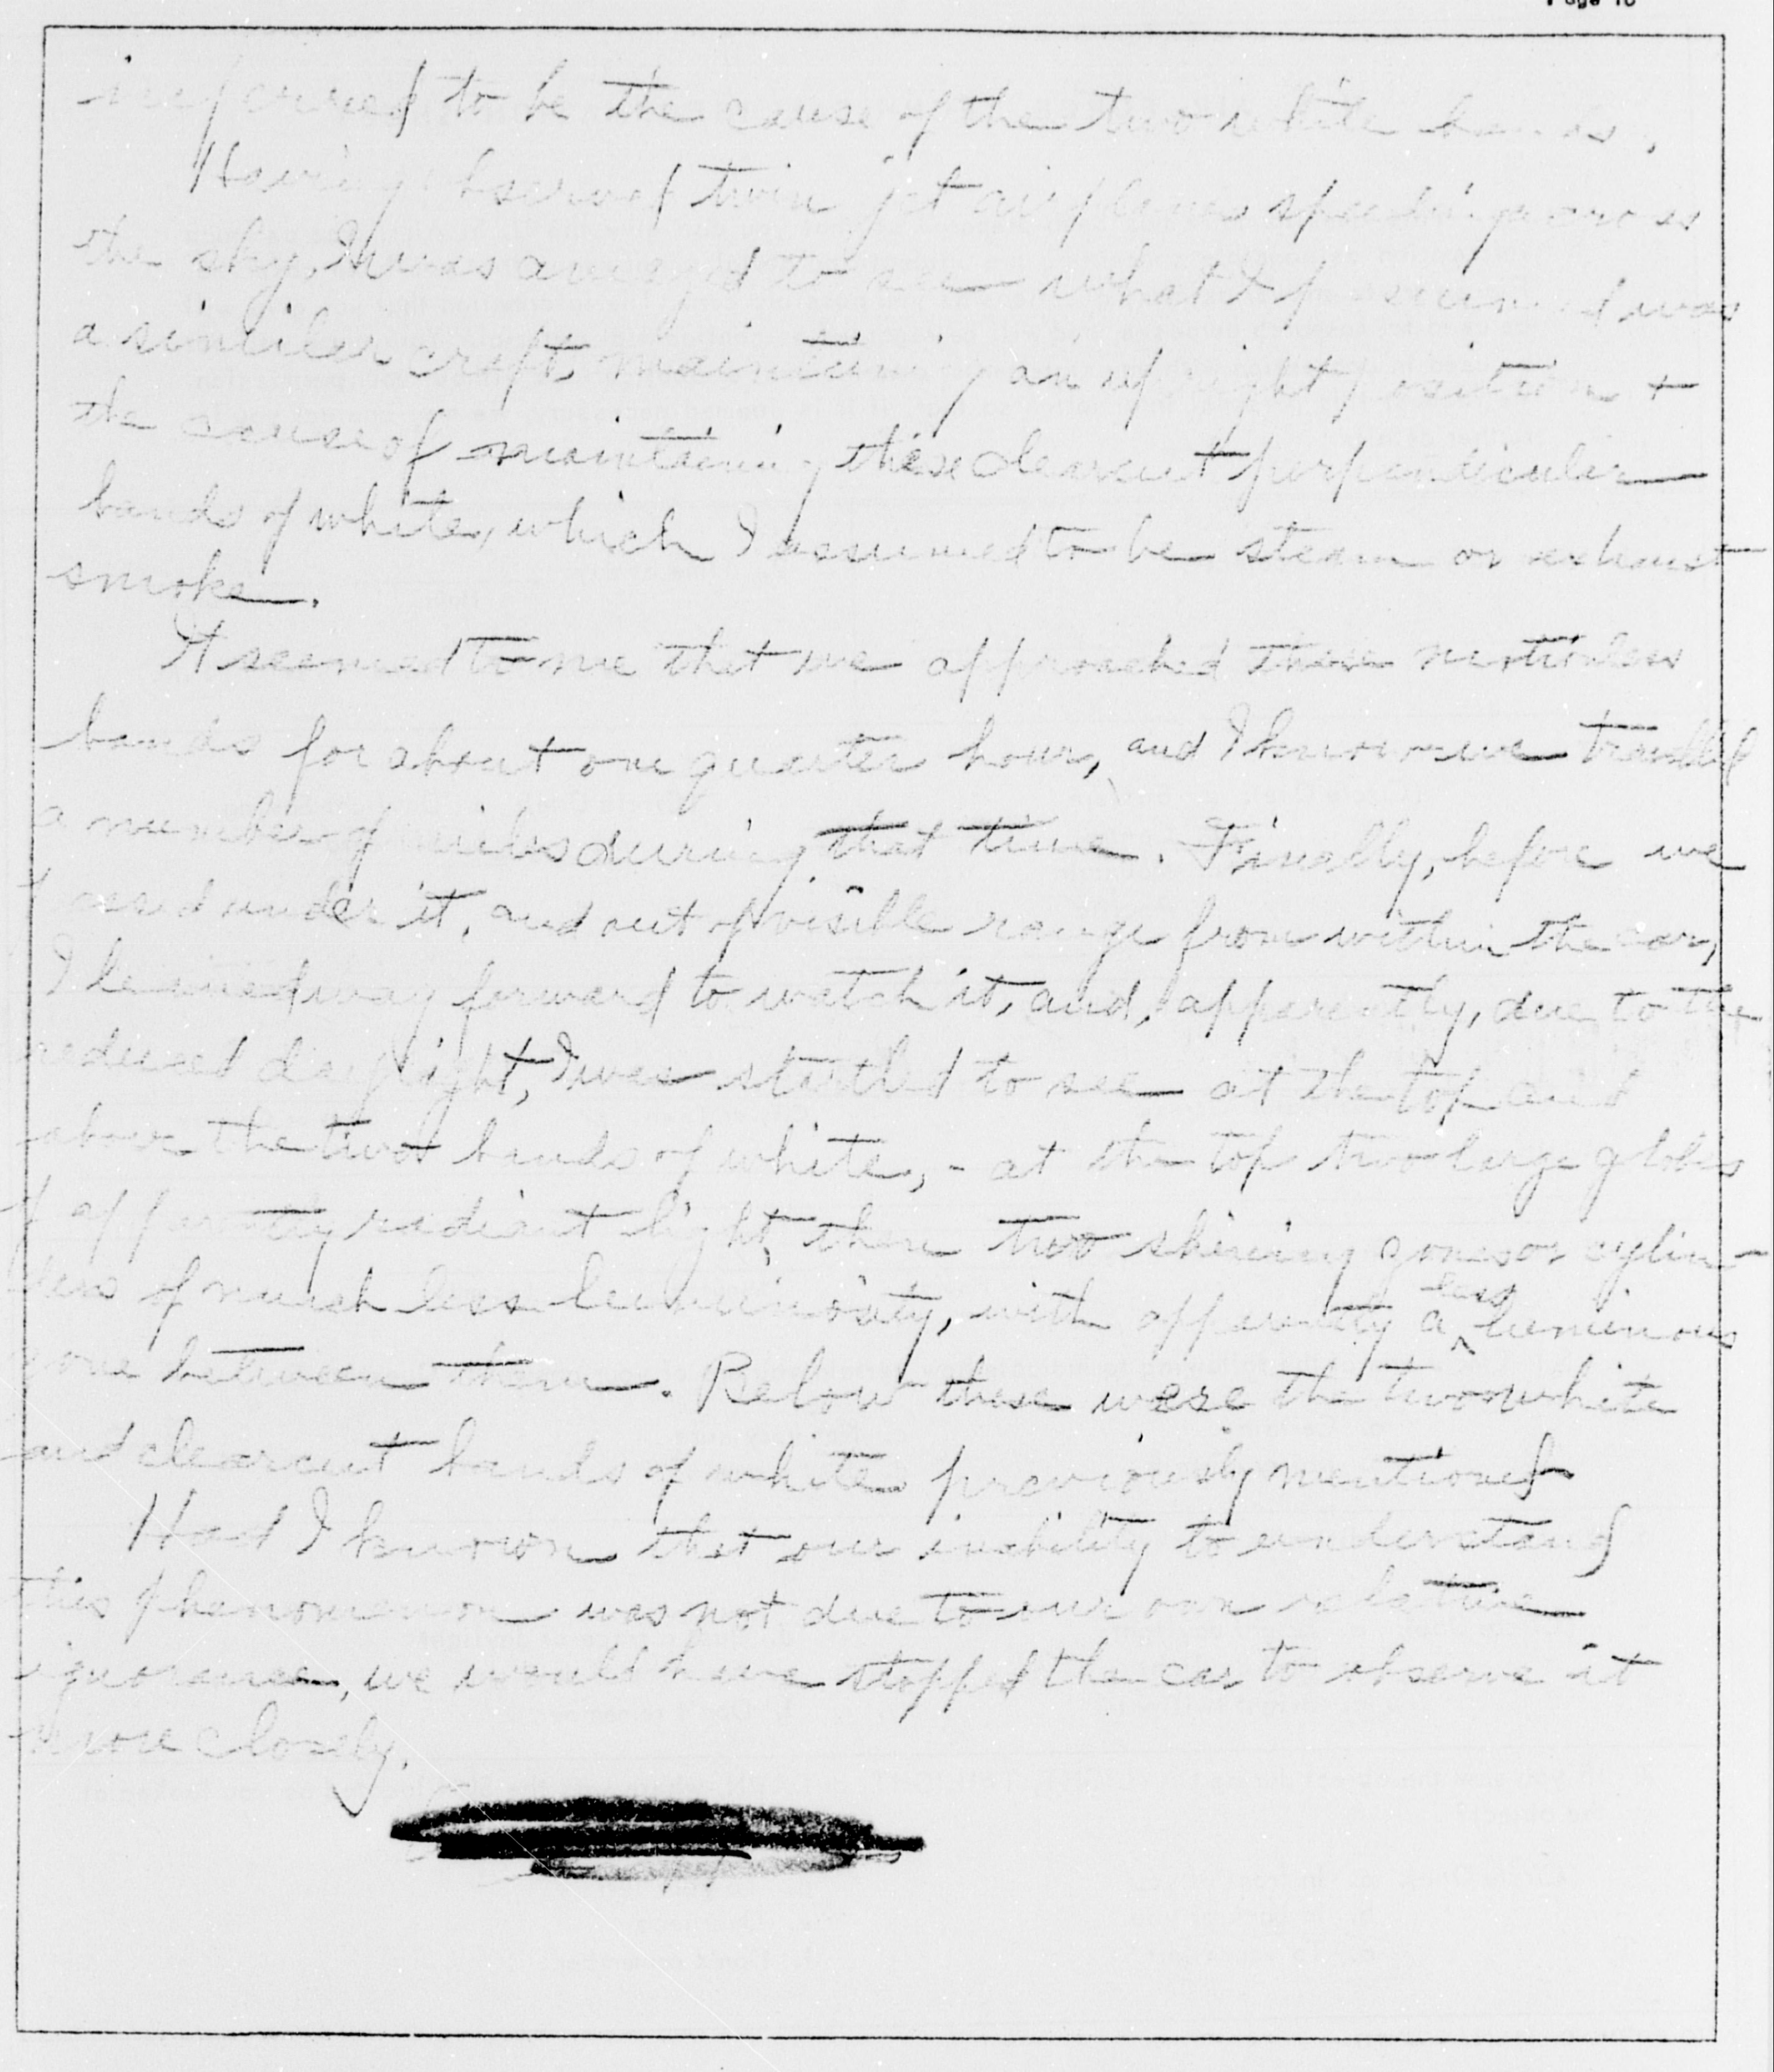 Page 10
inferred to be the cause of the two white bands.
Having observed twin jet airplanes speeding across
the sky, I was amazed to see what I presumed was
a similar craft, maintaining an upright position +
the cause of maintaining these clearcut perpendicular
bands of white, which I assumed to be steam or exhaust
smoke.
It seemed to me that we approached these motionless
bands for about one quarter hour, and I know we travelled
a number of miles during that time. Finally, before we
passed under it, and out of visible range from within the car,
I leaned way forward to watch it, and, apparently, due to the
reduced daylight, I was startled to see at the top and
above the two bands of white, - at the top two large globes
of apparently radiant light, then two shining zones or cylin-
ders of much less luminosity, with apparently a less luminous
zone between them. Below these were the two white
and clearcut bands of white previously mentioned
Had I known that our inability to understand
this phenomenon was not due to our own relative
ignorance, we would have stopped the car to observe it
more closely.